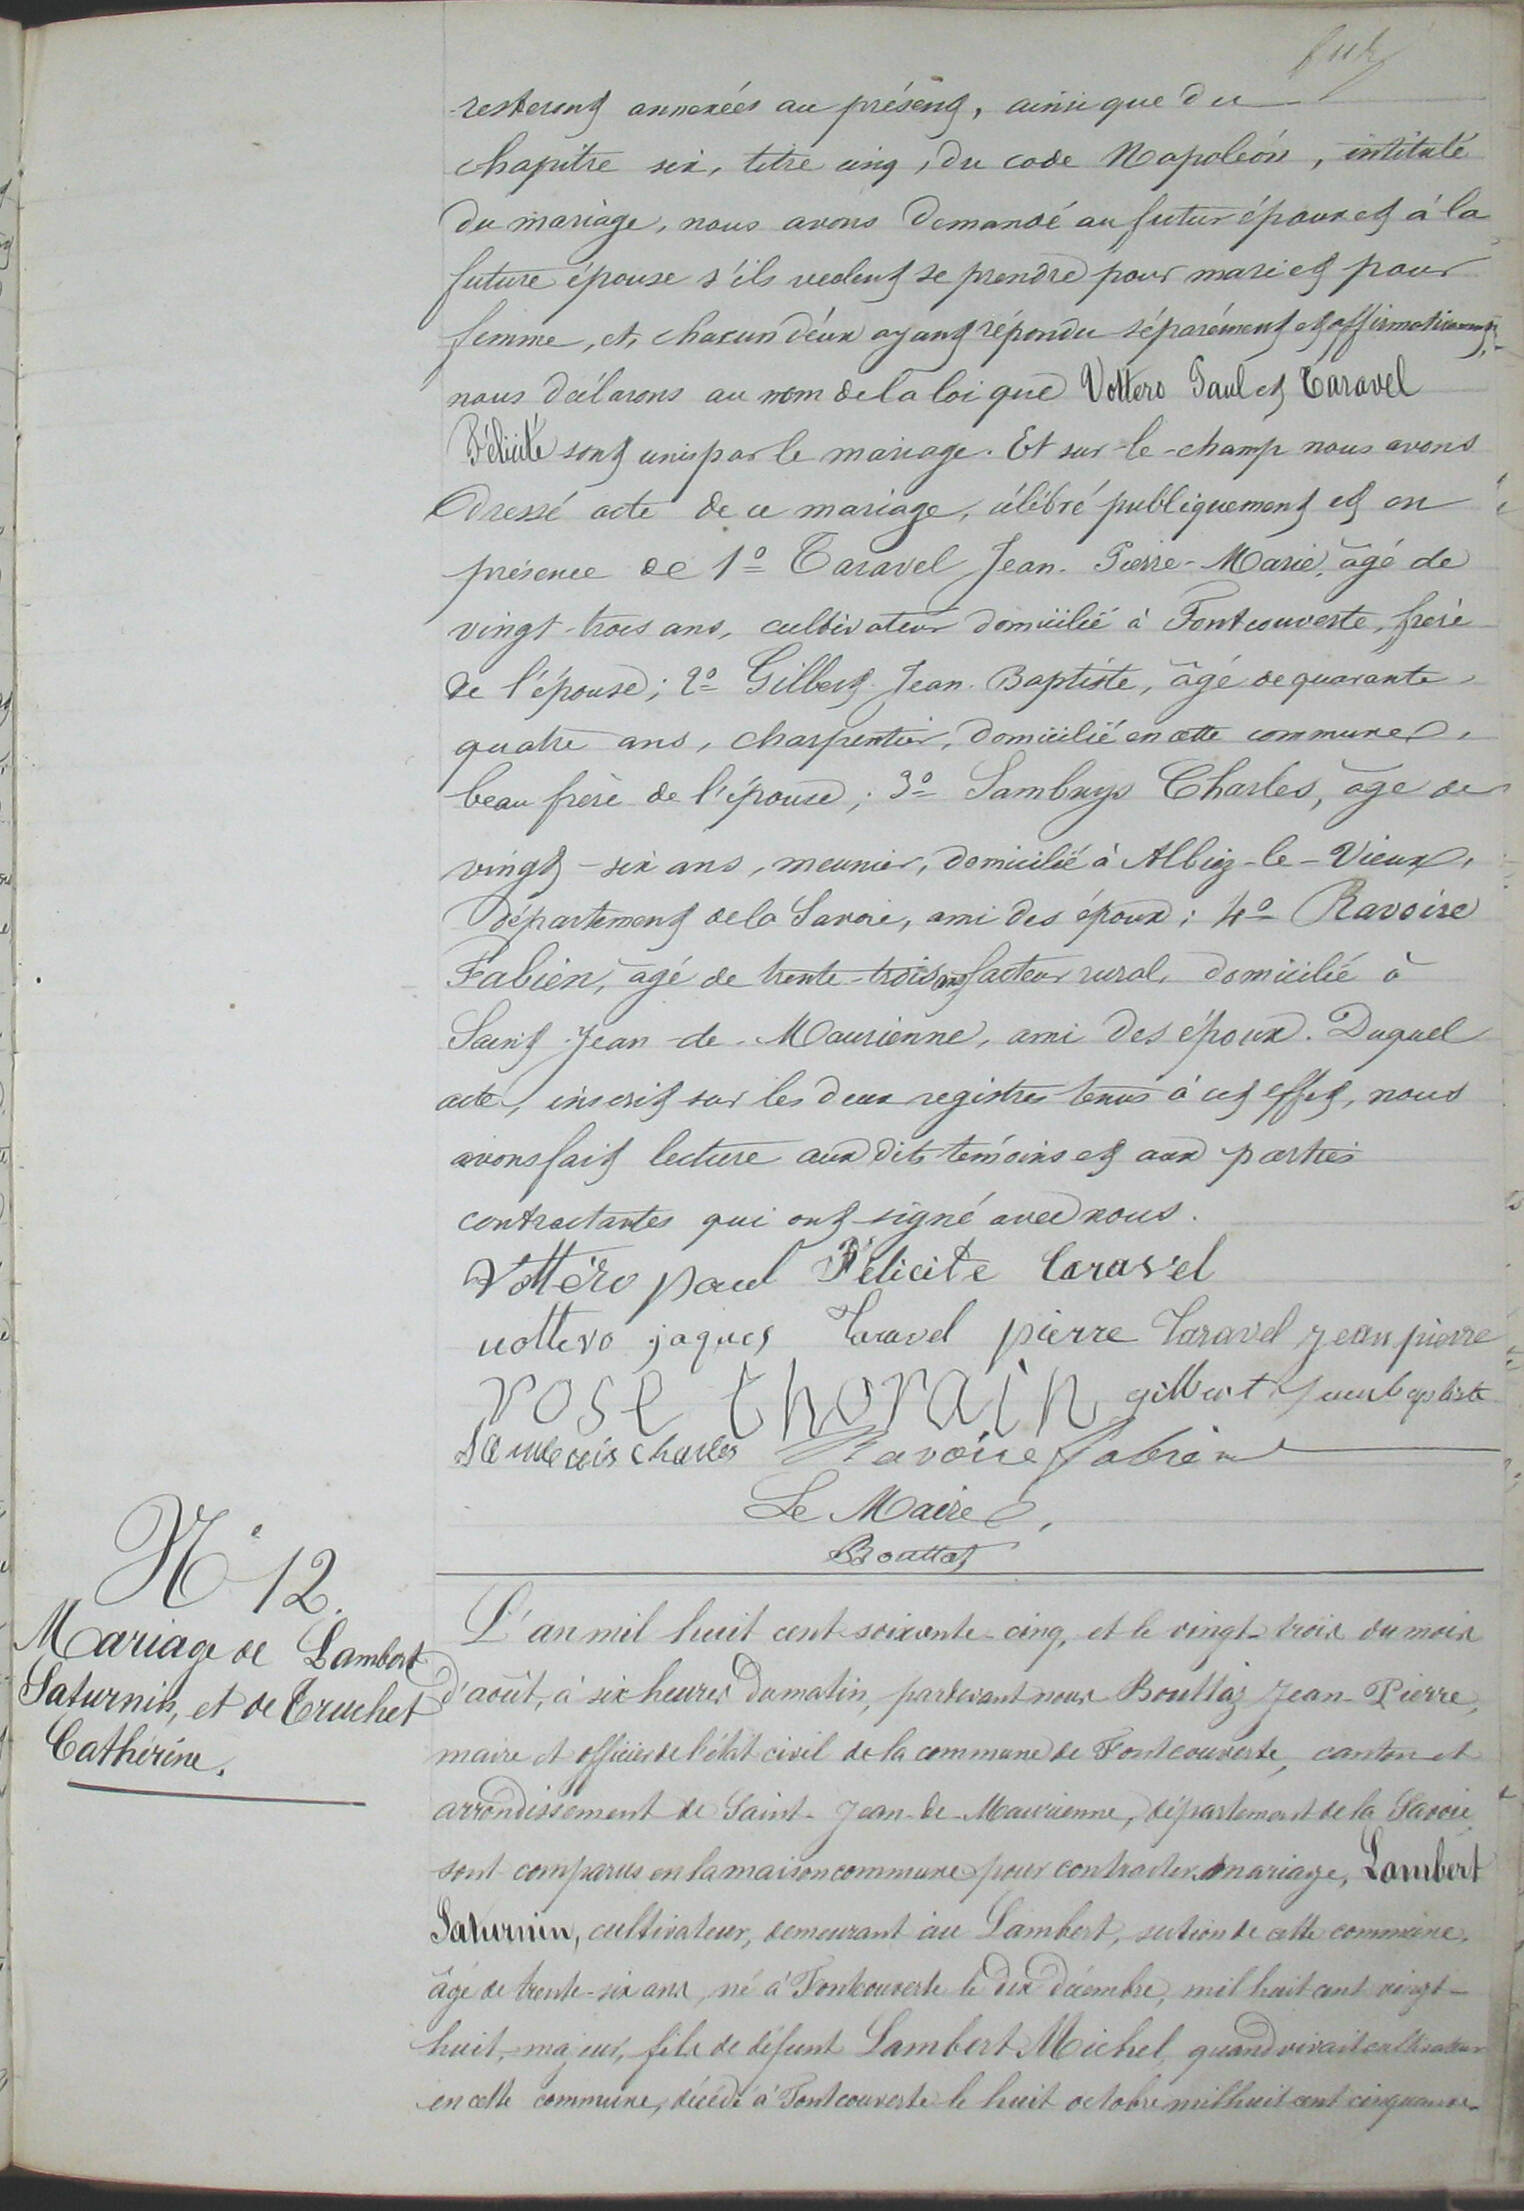 resteront annexées au présent, ainsi que du
chapitre six, titre cinq, du code Napoléon, intitulé
du mariage, nous avons demandé au futur époux et à la
future épouse s'ils veulent se prendre pour mari et pour
femme, et, chacun d'eux ayant répondu séparément et affirmativement,
nous déclarons au nom de la loi que Vottero Paul et Taravel
Félicité sont unis par le mariage. Et sur-le-champ nous avons
dressé acte de ce mariage, célébré publiquement et en
présence de 1º Taravel Jean-Pierre-Marie, âgé de
vingt-trois ans, cultivateur domicilié à Fontcouverte, frère
de l'épouse; 2º Gilbert Jean-Baptiste, âgé de quarante
quatre ans, charpentier, domicilié en cette commune,
beau frère de l'épouse; 3º Sambuys Charles, âgé de
vingt-six ans, meunier, domicilié à Albiez-le-Vieux,
département de la Savoie, ami des époux; 4º Ravoire
Fabien, âgé de trente-trois ans facteur rural, domicilié à
Saint-Jean-de-Maurienne, ami des époux. Duquel
acte, inscrit sur les deux registres tenus à cet effet, nous
avons fait lecture aux dits témoins et aux parties
contractantes qui ont signé avec nous.
Vottéro paul Félicité taravel
vottero jaques taravel pierre taravel jean pierre
rose thorain gilbert jean baptiste
Sambuis charles Ravoire fabien
Le Maire,
Bouttaz
Nº 12.
Mariage de Lambert
Saturnin, et de Truchet
Cathérine.
L'an mil huit cent soixante-cinq, et le vingt-trois du mois
d'août, à six heures du matin, pardevant nous Bouttaz Jean-Pierre,
maire et officier de l'état civil de la commune de Fontcouverte, canton et
arrondissement de Saint-Jean-de-Maurienne, département de la Savoie,
sont comparus en la maison commune pour contracter mariage, Lambert
Saturnin, cultivateur, demeurant au Lambert, section de cette commune,
âgé de trente-six ans, né à Fontcouverte le dix décembre, mil huit cent vingt-
huit, majeur, fils de défunt Lambert Michel, quand vivait cultivateur
en cette commune, décédé à Fontcouverte le huit octobre mil huit cent cinquante-